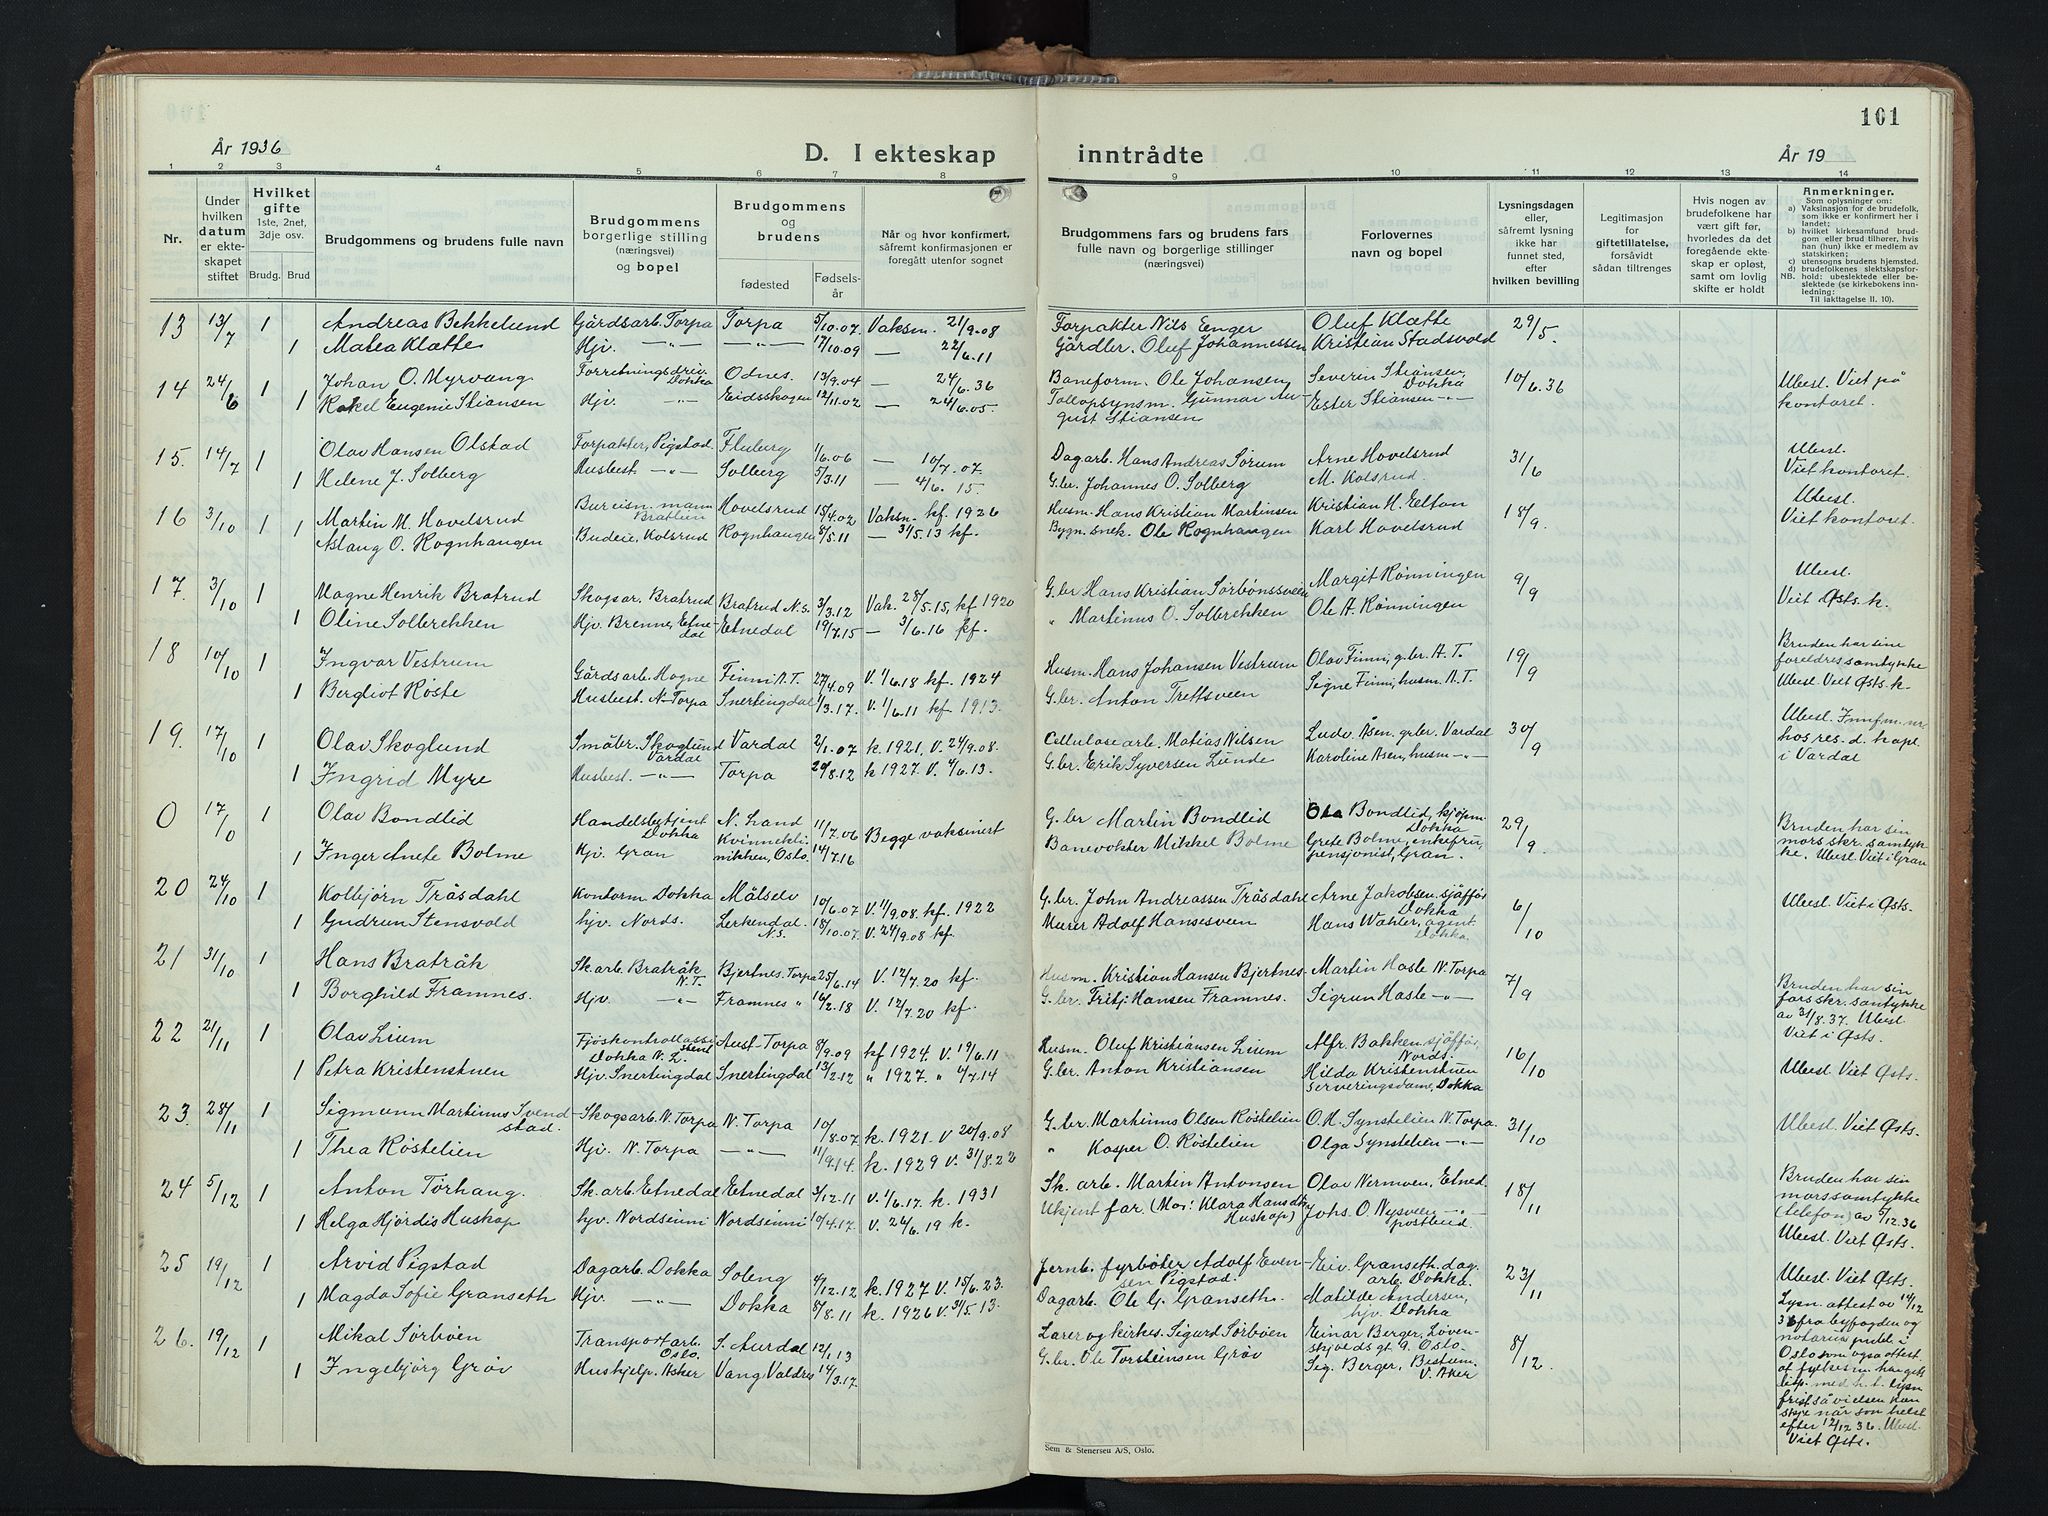 101
År 1936
D. I ekteskap inntrådte
År 19
1 2 3 4 5 6 7 8 9 10 11 12 13 14
Nr.
Under hvilken datum er ekteskapet stiftet
Hvilket gifte
1ste, 2net, 3dje osv.
Brudg. Brud
Brudgommens og brudens fulle navn
Brudgommens borgerlige stilling (næringsvei) og bopel
Brudgommens og brudens
fødested
Fødselsår
Når og hvor konfirmert, såfremt konfirmasjonen er foregått utenfor sognet
Brudgommens fars og brudens fars fulle navn og borgerlige stillinger (næringsvei)
Forlovernes navn og bopel
Lysningsdagen eller, såfremt lysning ikke har funnet sted, efter hvilken bevilling
Legitimasjon for giftetillatelse, forsåvidt sådan tiltrenges
Hvis nogen av brudefolkene har vært gift før, hvorledes da det foregående ekteskap er opløst, samt om lovlig skifte er holdt
Anmerkninger.
Som oplysning om:
a) Vaksinasjon for de brudefolk, som ikke er konfirmert her i landet;
b) hvilket kirkesamfund brudgom eller brud tilhører, hvis han (hun) ikke er medlem av statskirken;
c) utensogns brudens hjemsted.
d) brudefolkenes slektskapsforhold: ubeslektede eller beslektede (se kirkebokens innledning: Til iakttagelse II. 10).
NB.
13 13/7 1 Andreas Bekkelund Gårdsarb. Torpa Torpa 5/10.07 Vaksn. 21/9.08 Forpakter Nils Enger Oluf Klætte 29/5.
1 Matea Klætte Hjv. —"— —"— 17/10.09 — 22/6.11 Gårdbr. Oluf Johannessen Kristian Stadsvold
14 24/6 1 Johan O. Myrvang Forretningsdriv. Dokka Odnes. 13/9.04 — 24/6.36 Baneform. Ole Johansen Severin Stiansen, Dokka 10/6.36 Ubesl. Viet på kontoret.
1 Rakel Eugenie Stiansen Hjv. —"— Eidsskogen 12/11.02 — 24/6.05. Tollopsynsm. Gunnar August Stiansen Ester Stiansen —"—
15. 14/7 1 Olav Hansen Olstad Forpakter, Pigstad Fluberg 1/6.06 — 10/7.07. Dagarb. Hans Andreas Sørum Arne Hovelsrud 31/6 Ubesl. Viet kontoret.
1 Helene J. Solberg Husbest. —"— Solberg 5/3.11 — 4/6.15. G.br. Johannes O. Solberg M. Kolsrud.
16 3/10 1 Martin M. Hovelsrud Bureisn.mann Bratlien Hovelsrud 15/4.02 Vaksn. kf. 1926 Husm. Hans Kristian Martinsen Kristian H. Elton 18/9. Ubesl. Viet kontoret.
1 Aslaug O. Rognhaugen Budeie, Kolsrud Rognhaugen 8/5.11 — 31/5.13 kf. Bygn.snek. Ole Rognhaugen Karl Hovelsrud
17. 3/10 1 Magne Henrik Bratrud Skogsar. Bratrud Bratrud N.S. 3/3.12 Vak. 28/5.15, kf 1920 G.br Hans Kristian Sørbønssveen Margit Rønningen 9/9 Ubesl. Viet Østs. k.
1 Oline Solbrekken Hjv. Brenne, Etnedal Etnedal 19/7.15 — 3/6.16 kf. " Martinus O. Solbrekken Ole A. Rønningen
18 10/10 1 Ingvar Vestrum Gårdsarb. Hogne Finni A.T. 27/4.09 V. 1/6.18 kf. 1924 Husm. Hans Johansen Vestrum Olav Finni, g.br. A.T. 19/9 Bruden har sine foreldres samtykke Ubesl. Viet Østs. k.
1 Bergliot Røste Husbest. N-Torpa Snertingdal 1/3.17. V. 1/6.11 kf. 1913. G.br. Anton Trettsveen Signe Finni, husm. A.T.
19. 17/10 1 Olav Skoglund Småbr. Skoglund Vardal Vardal 2/1.07 k. 1921. V. 24/9.08. Cellulosearb. Matias Nilsen Ludv. Åsen, gr.br. Vardal 30/9 Ubesl. Innf.m.nr. hos res. d. kapl. i Vardal
1 Ingrid Myre Husbest. —"— Torpa 29/8.12 k 1927. V. 4/6.13. G.br. Erik Syversen Lunde Karoline Åsen, husm —"—
0 17/0 1 Olav Bondlid Handelsbetjent Dokka N. Land 11/7.06 Begge vaksinert G.br Martin Bondlid Ola Bondlid, kjøpm. Dokka 29/9. Bruden har sin mors skr. samtykke. Ubesl. Viet i Gran
1 Inger Anete Bolme Hjv. Gran Kvinneklinikken, Oslo. 14/7.16 Banevokter Mikkel Bolme Grete Bolme, enkefru, pensjonist, Gran.
20 24/10 1 Kolbjørn Tråsdahl Kontorm Dokka Målselv 10/6.07 V. 1/9.08. kf. 1922 G.br. John Andreassen Tråsdahl Arne Jakobsen sjåfør Dokka 6/10 Ubesl. Viet i Østs.
1 Gudrun Stensvold hjv. Nords. Lerkendal. N.S. 18/10.07. V. 24/9.08 kf. Murer Adolf Hansesveen Hans Wahler, agent Dokka.
21 31/10 1 Hans Bratråk Sk.arb. Bratråk N.T. Bjertnes. Torpa 25/6.14 V. 12/7.20 kf. Husm. Kristian Hansen Bjertnes Martin Hasle N. Torpa 7/9 Bruden har sin fars skr. samtykke av 31/8.37. Ubesl. Viet i Østs.
1 Borghild Framnes. Hjv. —"— Framnes " 16/2.18 V. 12/7.20 kf. G.br. Fritj. Hansen Framnes. Sigrun Hasle —"—
22 21/11 1 Olav Lium Fjøskontrollassistent Dokka N.L. Aust-Torpa 8/9.09 kf 1924. V. 19/6.11 Husm. Oluf Kristiansen Lium Alfr. Bakken sjåfør, Nords. 16/10 Ubesl. Viet Østs.
1 Petra Kristenstuen Hjv. Snertingdal Snertingdal 13/2.12 " 1927. " 4/7.14 G.br. Anton Kristiansen Hilda Kristenstuen serveringsdame, Dokka
23. 28/11 1 Sigmunn Martinus Svendstad. Skogsarb. N. Torpa N. Torpa 10/8.07. k. 1921. V 20/9.08 G.br. Martinus Olsen Røstelien O.H. Synstelien N. Torpa. 31/10 Ubesl. Viet Østs.
1 Thea Røstelien Hjv. N. Torpa —"— 11/9.14. k. 1929 V. 31/8.22 " Kasper O. Røstelien Olga Synstelien —"—
24 5/12 1 Anton Tørhaug. Sk. arb. Etnedal Etnedal 3/12.11 V. 1/6.17. k. 1931 Sk. arb. Martin Antonsen Olav Nermoen, Etned. 18/11 Bruden har sin mors samtykke (telefon) av 5/12.36 Ubesl. Viet Østs.
1 Helga Hjørdis Huskap hjv. Nordsinni Nordsinni 10/4.17. V. 24/6.19 k. Ukjent far. (Mor: Klara Hansdtr. Huskap) Johs. O. Nysveen —"— postbud.
25 19/12 1 Arvid Pigstad Dagarb. Dokka Soleng 4/12.12 k. 1927 V. 15/6.23. Jernb. fyrbøter Adolf Evensen Pigstad. Eiv. Granseth dagarb. Dokka. 23/11 Ubesl. Viet Østs.
1 Magda Sofie Granseth Hjv. —"— Dokka 8/8.11 k. 1926 V. 31/5.13. Dagarb. Ole G. Granseth. Matilde Andersen, hjv. Dokka
26. 19/12 1 Mikal Sørbøen Transportarb. Oslo. S. Aurdal 12/1.13 Lærer og kirkes. Sigurd Sørbøen Einar Berger, Løvenskjoldsgt 9. Oslo. 8/12. Lysn. attest av 14/12 36 fra byfogden og notarius publ. i Oslo som også attest. at fylkesm. har gitt disp. med h. t. lysn fristså vielsen kan skje når som helst efter 12/12 36. Ubesl. Viet Østs.
1 Ingebjørg Grøv Hushjelp. Asker Vang, Valdres 14/3.17. G.br. Ole Torsteinsen Grøv Sig. Berger, Bestum V. Aker
Sem & Stenersen A/S, Oslo.